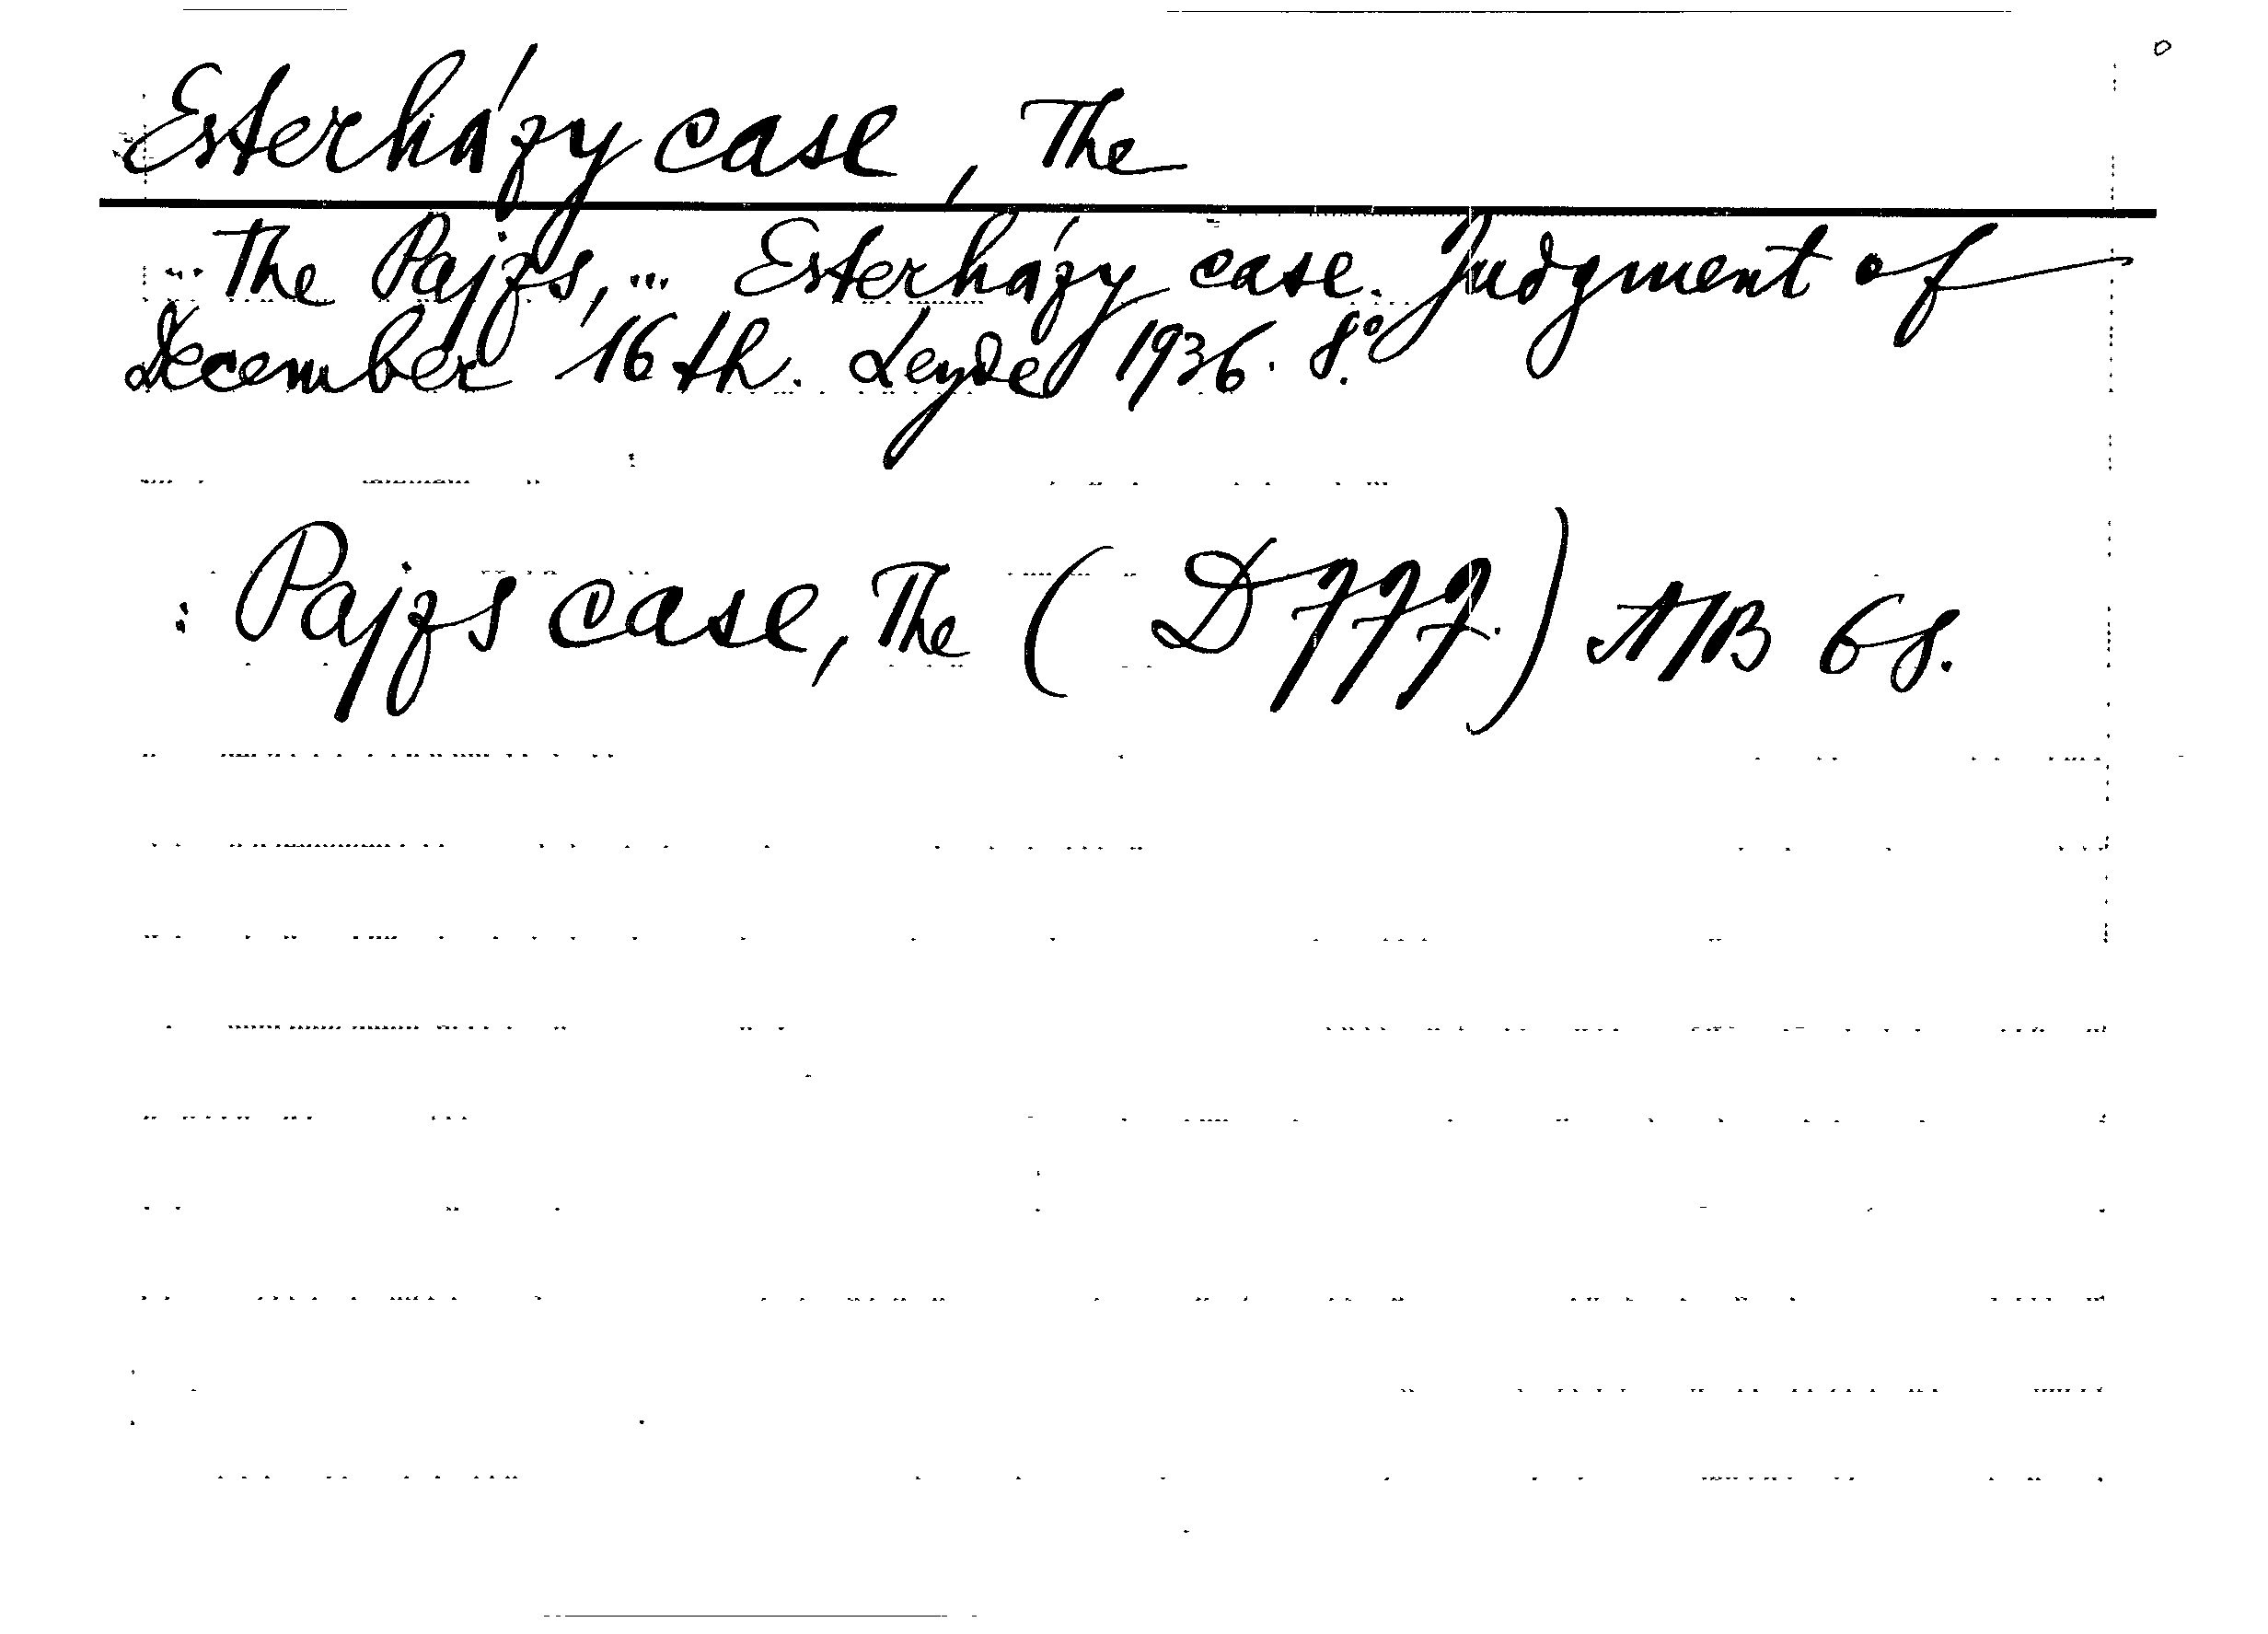 Esterházy case, The
The Pajzs, ... Esterházy case. Judgment of
December 16th. Leyde 1936. 8.°
: Pajzs case, The ( D 777. ) A/B 68.